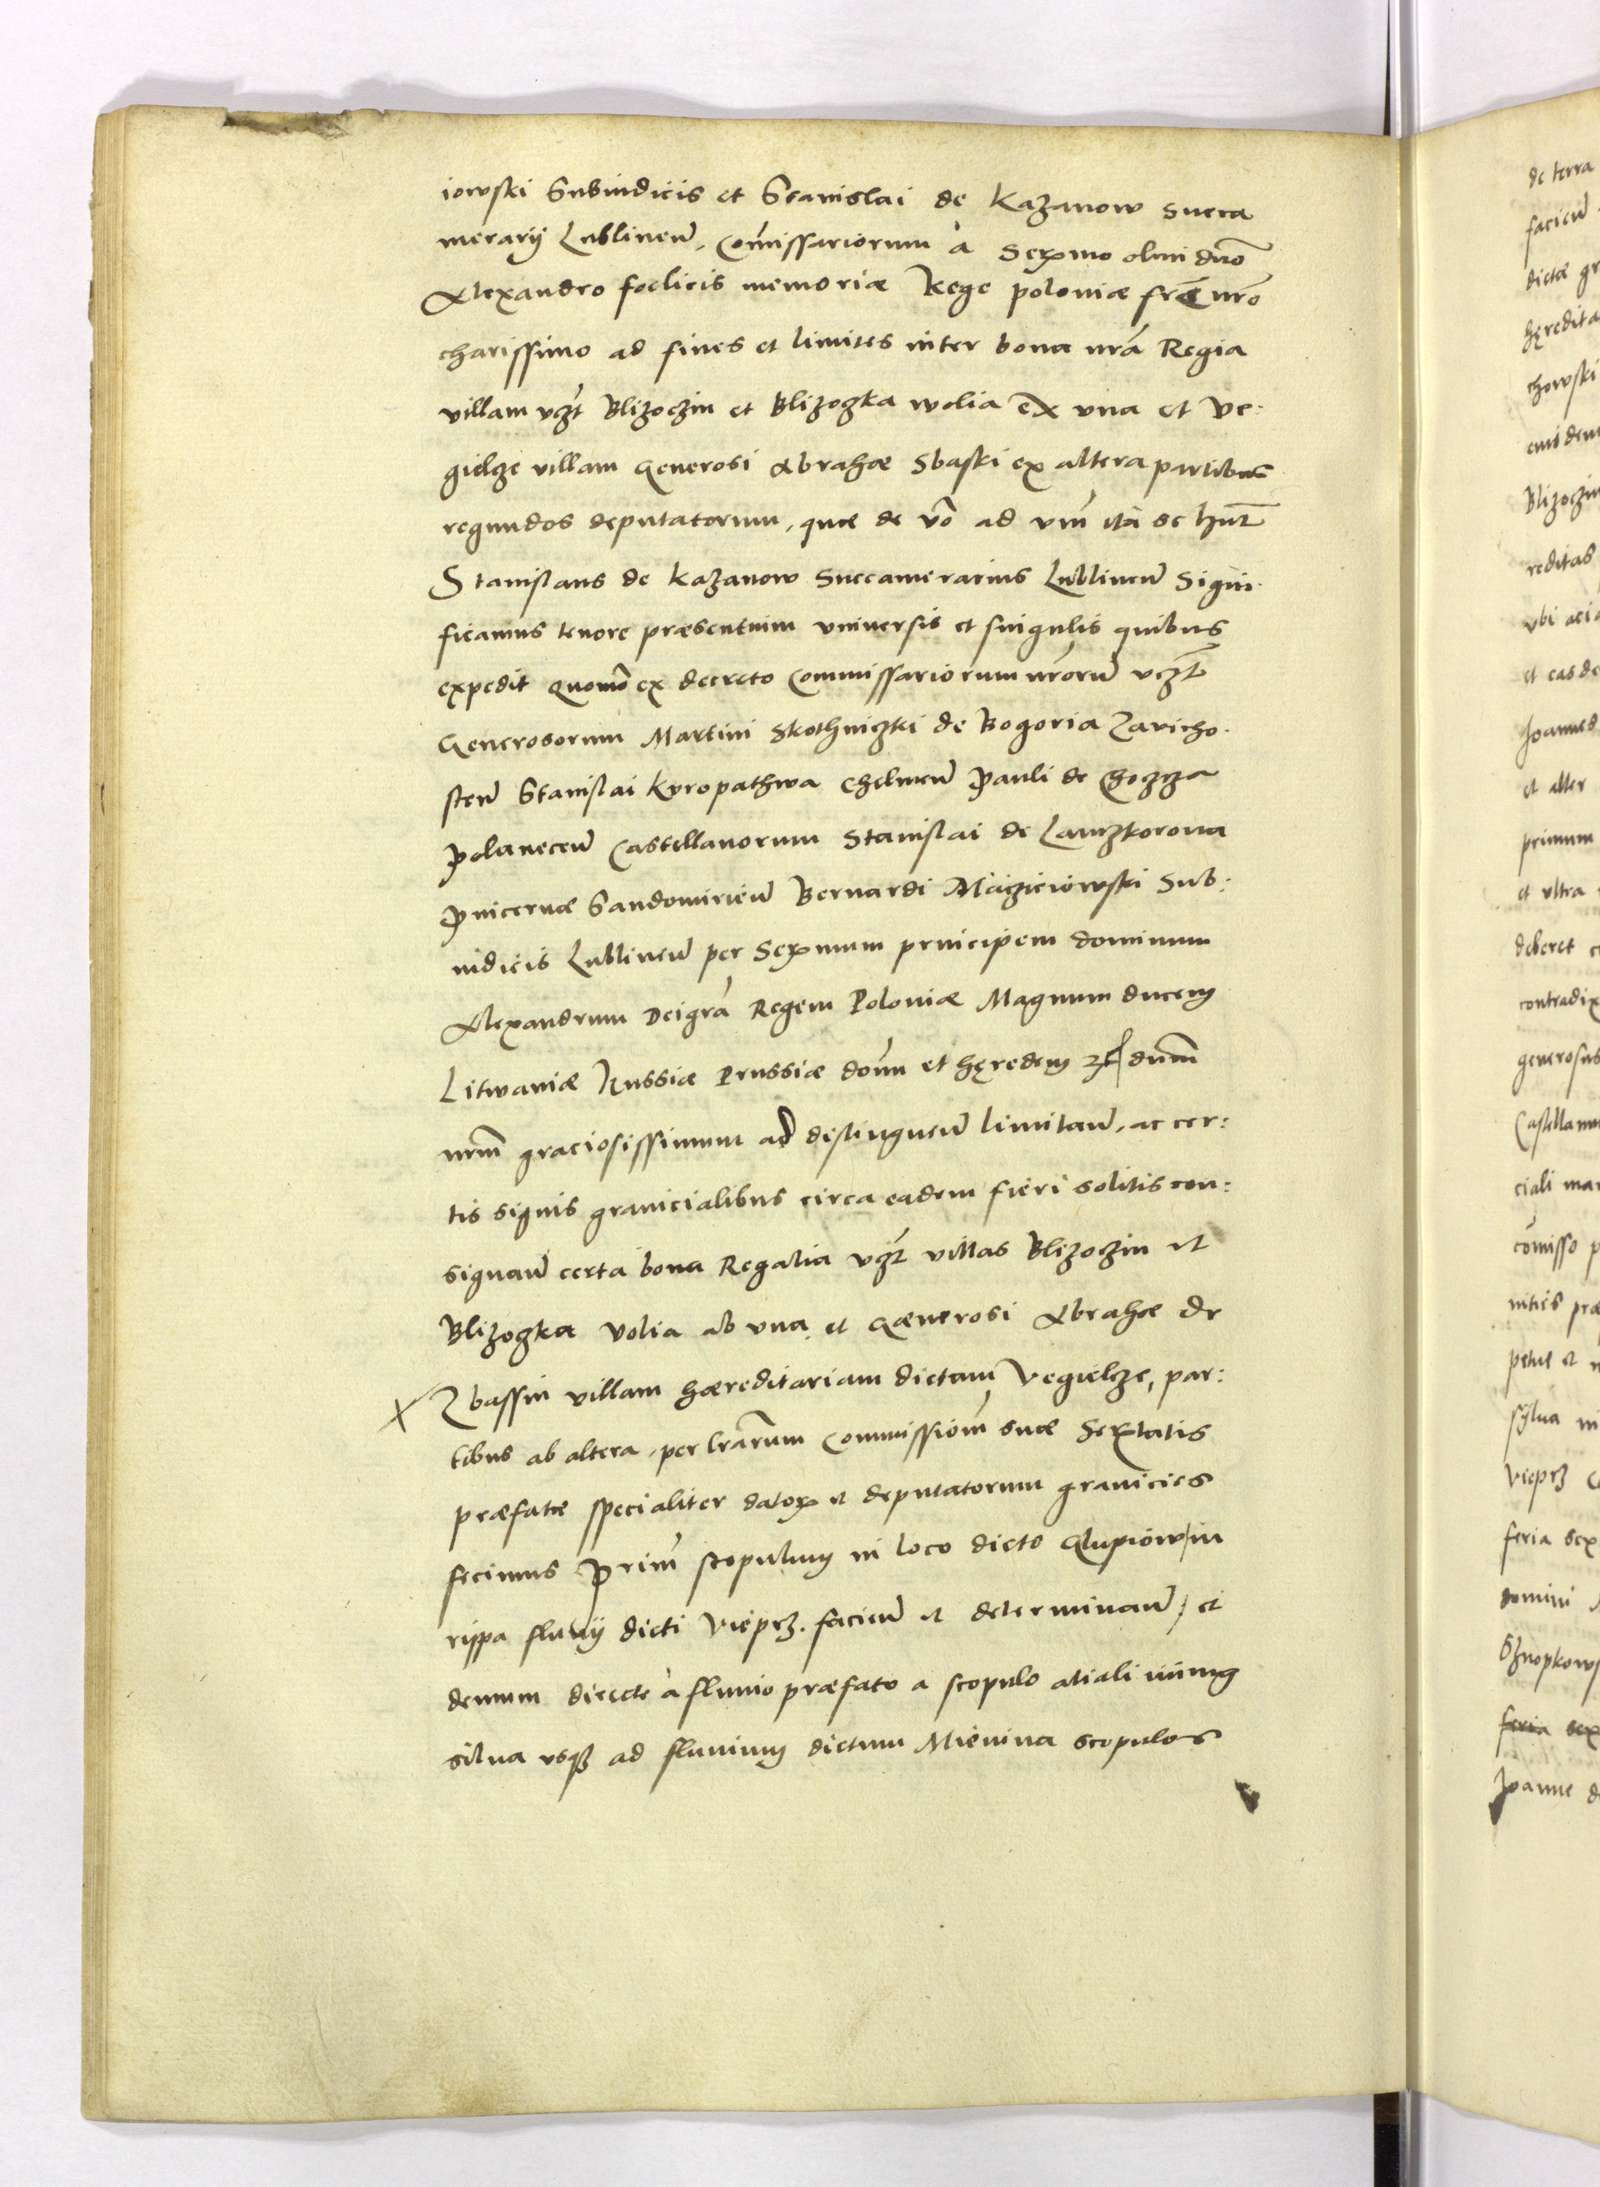 iowski Subiudicis et Stanislai de Kazanow Succa
merarij Lublineñ, Com̃issariorum a Serx̃mo olim dño
Alexandro foelicis memoriæ Rege poloniæ frẽ nrõ
charissimo ad fines et limites inter bona nrã Regia
villam vcz̃t Blizoczin et Blizogka wolia ex vna et Ve-
gielcze villam Generosi Abrahæ Sbaski ex altera partibus
regundos deputatorum, quæ de võ ad vm̃ ita se hñt
Stanislaus de Kazanow Succamerarius Lublineñ Signi-
ficamus tenore præsentium vniversis et singulis quibus
expedit quomõ ex decreto Commissariorum nrõrũ vcz̃t
Generosorum Martini Skothniczki de Bogoria Zavicho-
steñ Stanislai Kvropathwa Chelmeñ Pauli de
Polaneceñ Castellanorum Stanislai de Lanczkorona
Pincernæ Sandomirieñ Bernardi Maczieiowski Sub:
iudicis Lublineñ per Serx̃mum principem dominum
Alexandrum Dei grã Regem Poloniæ Magnum ducem
Litwaniæ Russiæ Prussiæ dom̃ et hęredem zc̃ dnm̃
nrm̃ graciosissimum ad distingueñ limitañ, ac cer:
tis signis granicialibus circa eadem fieri solitis con:
signañ certa bona Regalia vcz̃t villas Blizoczin et
Blizogka volia ab vna et Gænerosi Abrahæ de
X Zbassin villam hæreditariam dictam Vegielcze, par:
tibus ab altera, per lrãrum Commissiom̃ suæ Serx̃tatis
præfatæ specialiter datorx̃ et deputatorum granicies
fecimus Prim̃ scopulum in loco dicto Glupiow in
rippa fluvij dicti Vieprz. facieñ et determinañ, et
demum directe a fluvio præfato a scopulo aciali
silva vsq3 ad fluvium dictum Mienina scopulos
de terra
dictæ gr
hęredita
chowski
Blizoczin
reditas
et alter
primum
et vltra
contradix
generosus
ciali
com̃isso p
sylva in
Vieprz
feria sex
domini
Joanne d